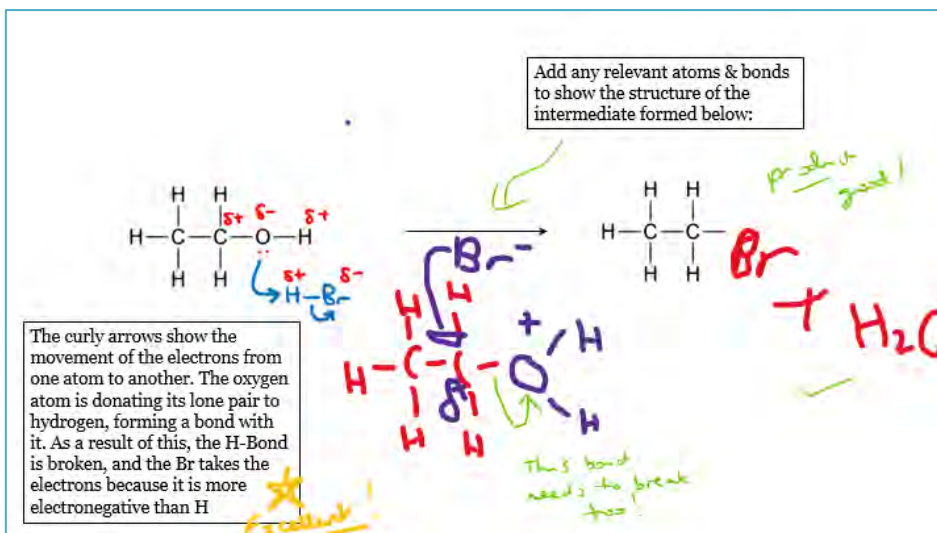 Add any relevant atoms & bonds
to show the structure of the
intermediate formed below:
product
good!
H H
δ+ δ- δ+
H-C-C-O-H
H H
δ+ δ-
H-Br
H H
H-C-C-Br
H H
+ H₂O
Br⁻
H H
+ H
H-C-C-O
δ+ H
H H
This bond
needs to break
too!
The curly arrows show the
movement of the electrons from
one atom to another. The oxygen
atom is donating its lone pair to
hydrogen, forming a bond with
it. As a result of this, the H-Bond
is broken, and the Br takes the
electrons because it is more
electronegative than H
Excellent!